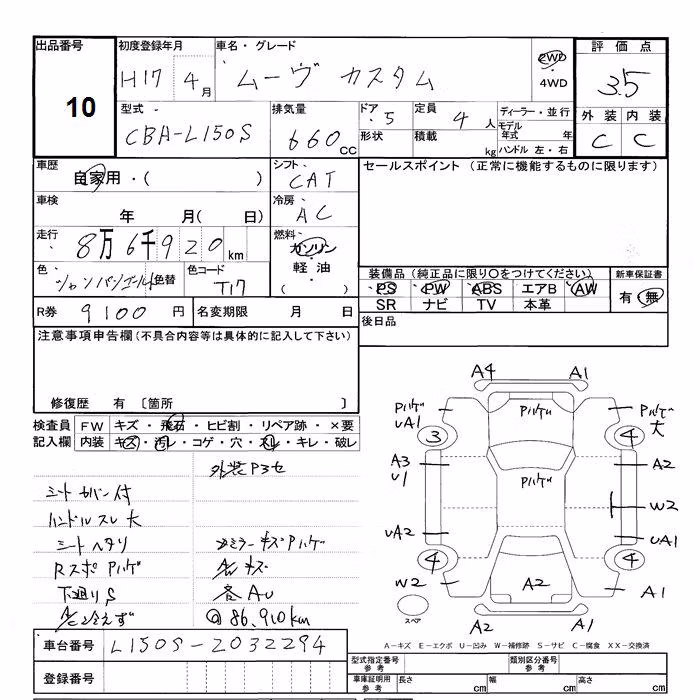 出品番号 初度登録年月 車名・グレード 評価点
10 H17年 4月 ムーヴ カスタム 2WD・4WD 3.5
型式 排気量 ドア・形状 定員 積載 ディーラー・並行 外装 内装
CBA-L150S 660cc 5 4人 kg モデル年式 年 ハンドル 左・右 C C
車歴 自家用・( ) シフト CAT セールスポイント (正常に機能するものに限ります)
車検 年 月( 日) 冷房 AC
走行 8万6千920km 燃料 ガソリン・軽油・( )
色 シャンパンゴールド 色替 色コード T17
装備品(純正品に限り○をつけてください) 新車保証書
PS PW ABS エアB AW 有・無
SR ナビ TV 本革
R券 9100円 名変期限 月 日 後日品
注意事項申告欄(不具合内容等は具体的に記入して下さい)
修復歴 有 〔箇所 〕
検査員記入欄 FW キズ・飛石・ヒビ割・リペア跡・×要
内装 キズ・汚レ・コゲ・穴・スレ・キレ・破レ
外装P3セ
シートカバー付
ハンドルスレ大
シートヘタリ
RスポPハゲ
下廻りS
A/C冷えず
ミラーキズPハゲ
キズ
各AU
@86,910km
A4 A1
Pハゲ UA1 Pハゲ Pハゲ 大
3 4
A3 U1 A2
Pハゲ
W2
UA2 UA1
4 4
W2 A2 A1
スペア
A2 A1
車台番号 L150S-2032294
登録番号
A-キズ E-エクボ U-凹み W-補修跡 S-サビ C-腐食 XX-交換済
型式指定番号 参考 類別区分番号 参考
車庫証明用 参考 長さ cm 幅 cm 高さ cm